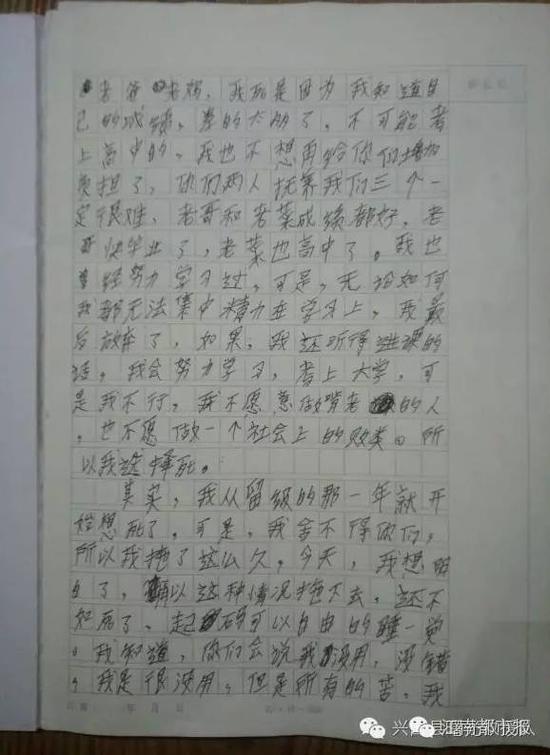 老爸老妈，我死是因为我知道自
己的成绩，差的太多了，不可能考
上高中的。我也不想再给你们增加
负担了，你们两人抚养我们三个一
定很难，老哥和老菜成绩都好，老
快毕业了，老菜也高中了。我也
经努力学习过，可是，无论如何
我都无法集中精力在学习上，我最
后放弃了，如果，我还听得进课的
话，我会努力学习，考上大学，可
是我不行，我不愿意做啃老的人
，也不愿做一个社会上的败类。所
以我选择死。
其实，我从留级的那一年就开
始想死了，可是，我舍不得你们，
所以我拖了这么久，今天，我想明
白了，以这种情况拖下去，还不
如死了、起码可以自由的睡一觉
。我知道，你们会说我没用，没错
，我是很没用，但是所有的苦，我
年 月 日